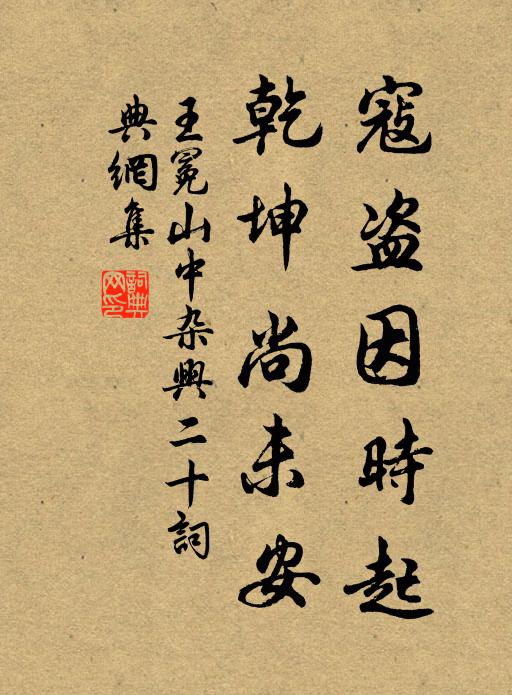 寇盗因時起
乾坤尚未安
王冕山中杂興二十詞
典網集
詞典网印